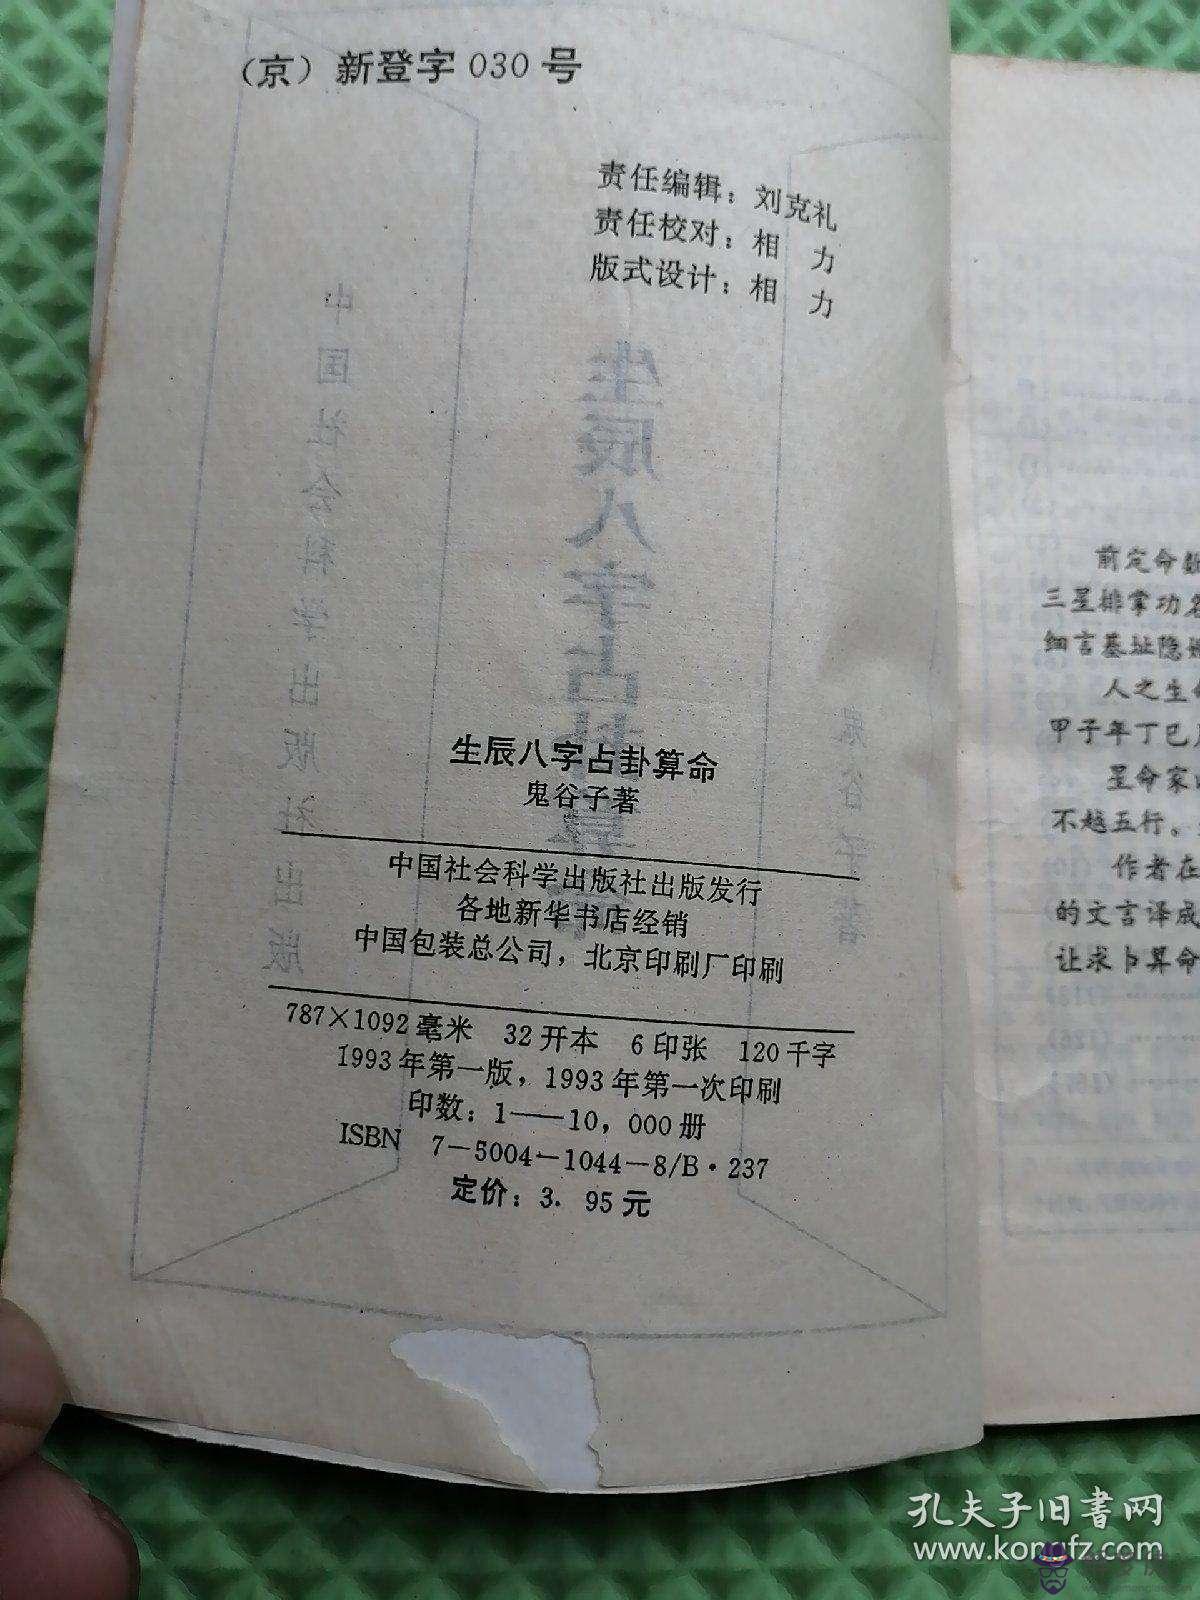 （京）新登字 030 号
责任编辑：刘克礼
责任校对：相　力
版式设计：相　力
生辰八字占卦算命
鬼谷子著
中国社会科学出版社出版发行
各地新华书店经销
中国包装总公司，北京印刷厂印刷
787×1092毫米　32开本　6印张　120千字
1993年第一版，1993年第一次印刷
印数：1——10，000册
ISBN　7-5004-1044-8/B·237
定价：3．95元
前定命数
三星排掌功名
细言基址隐
人之生
甲子年丁巳
星命家
不越五行、
作者在
的文言译成
让求卜算命
孔夫子旧书网
www.kongfz.com